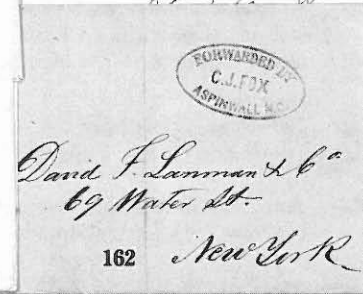 FORWARDED BY
C.J. FOX
ASPINWALL N.G.
David F. Lanman & Co
69 Water St.
162 New York